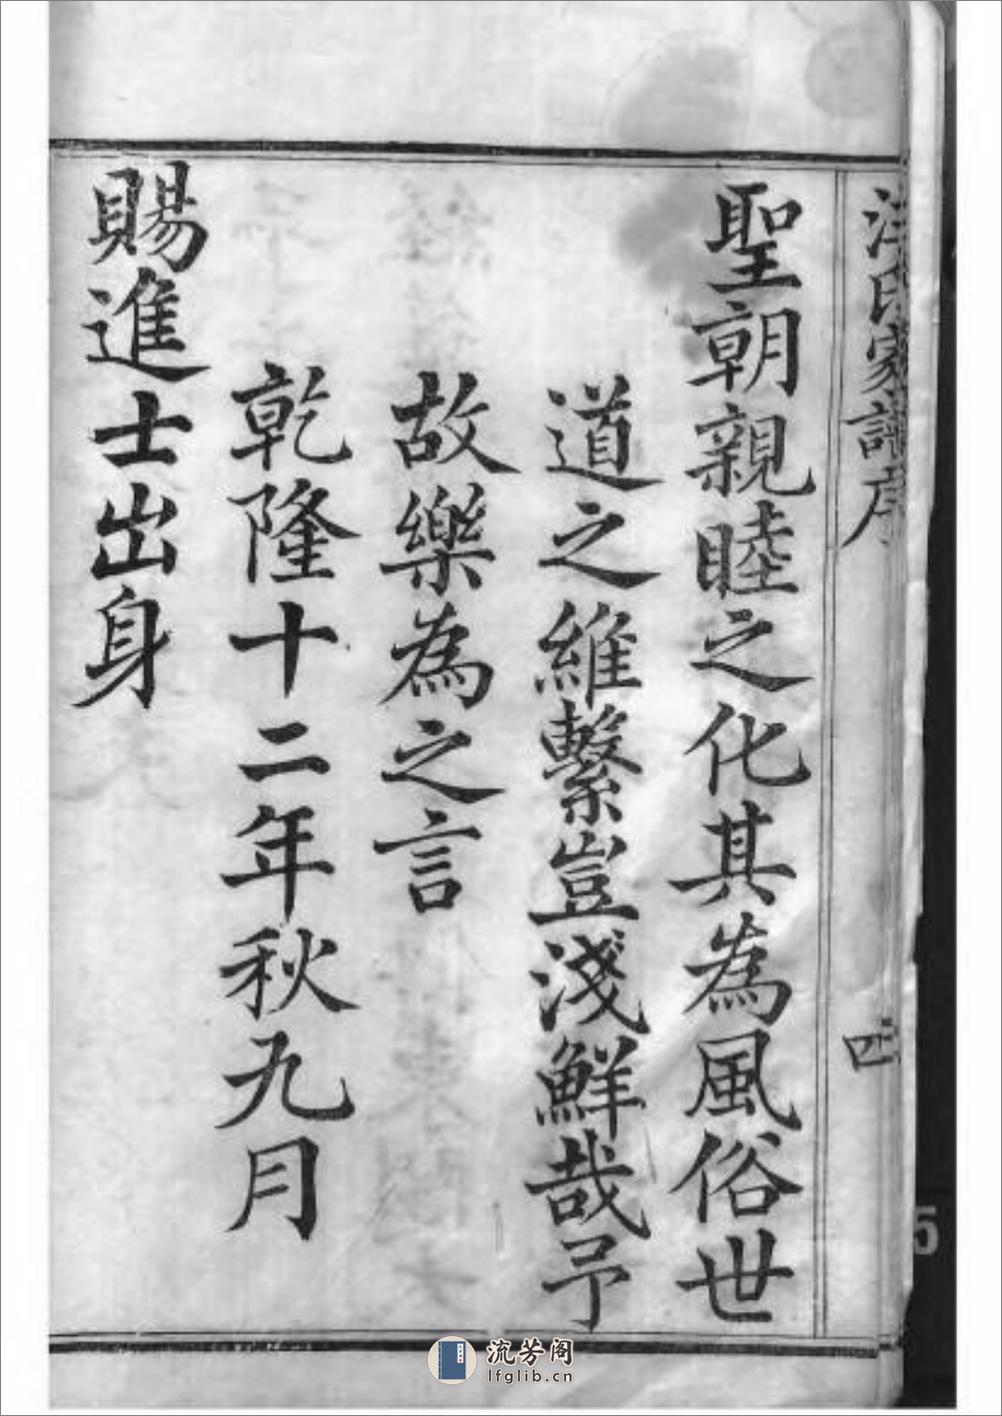 汪氏家譜序
四
聖朝親睦之化其為風俗世
道之維繫豈淺鮮哉予
故樂為之言
乾隆十二年秋九月
賜進士出身
5
流芳阁
lfglib.cn